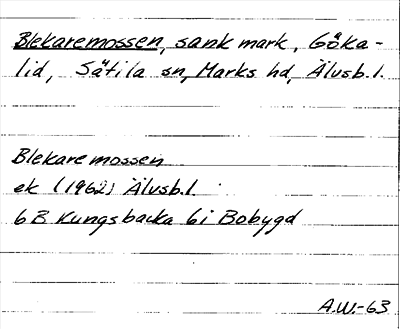 Blekaremossen, sank mark, Göka-
lid, Sätila sn, Marks hd, Älvsb.l.
Blekaremossen
ek (1962) Älvsb.l.
6B Kungsbacka 6i Bobygd
A.W.-63